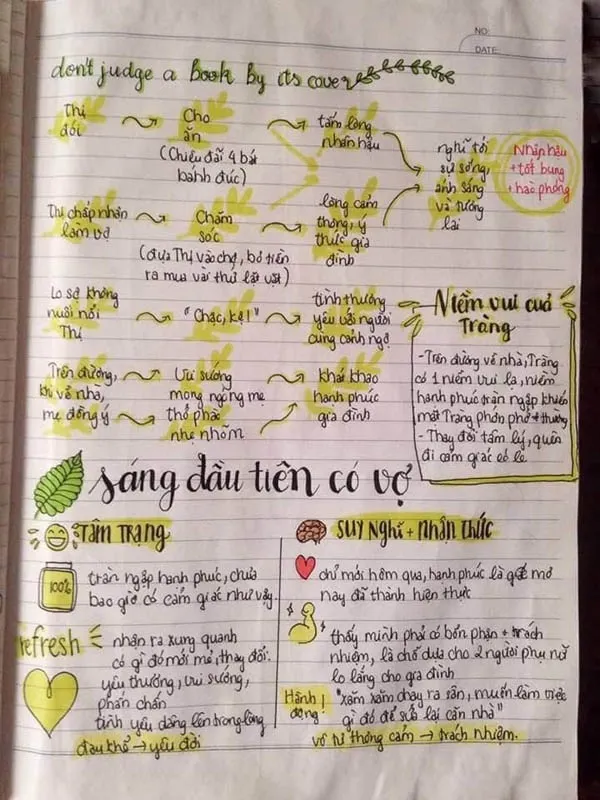 NO:
DATE:
don't judge a book by its cover
Thị
đói
Cho
ăn
(Chiêu đãi 4 bát
bánh đúc)
tấm lòng
nhân hậu
nghĩ tới
sự sống,
ánh sáng
và tương
lai
Nhân hậu
+ tốt bụng
+ hào phóng
Thị chấp nhận
làm vợ
Chăm
sóc
(đưa Thị vào chợ, bỏ tiền
ra mua vài thứ lặt vặt)
lòng cảm
thông, ý
thức gia
đình
Lo sợ không
nuôi nổi
Thị
"Chậc, kệ!"
tình thương
yêu với người
cùng cảnh ngộ
Trên đường,
khi về nhà,
mẹ đồng ý
Vui sướng
mong ngóng mẹ
thở phào
nhẹ nhõm
Khát khao
hạnh phúc
gia đình
Niềm vui của
Tràng
- Trên đường về nhà, Tràng
có 1 niềm vui lạ, niềm
hạnh phúc tràn ngập khiến
mặt Tràng phớn phở ≠ thường
- Thay đổi tâm lý, quên
đi cảm giác
sáng đầu tiên có vợ
TÂM TRẠNG
100%
tràn ngập hạnh phúc, chưa
bao giờ có cảm giác như vậy
refresh
nhận ra xung quanh
có gì đó mới mẻ, thay đổi.
yêu thương, vui sướng,
phấn chấn
tình yêu dâng lên trong lòng
đau khổ → yêu đời
SUY NGHĨ + NHẬN THỨC
chỉ mới hôm qua, hạnh phúc là giấc mơ
nay đã thành hiện thực
thấy mình phải có bổn phận + trách
nhiệm, là chỗ dựa cho 2 người phụ nữ
lo lắng cho gia đình
Hành
động!
"xăm xăm chạy ra sân, muốn làm việc
gì đó để sửa lại căn nhà"
vô tư thông cảm → trách nhiệm.